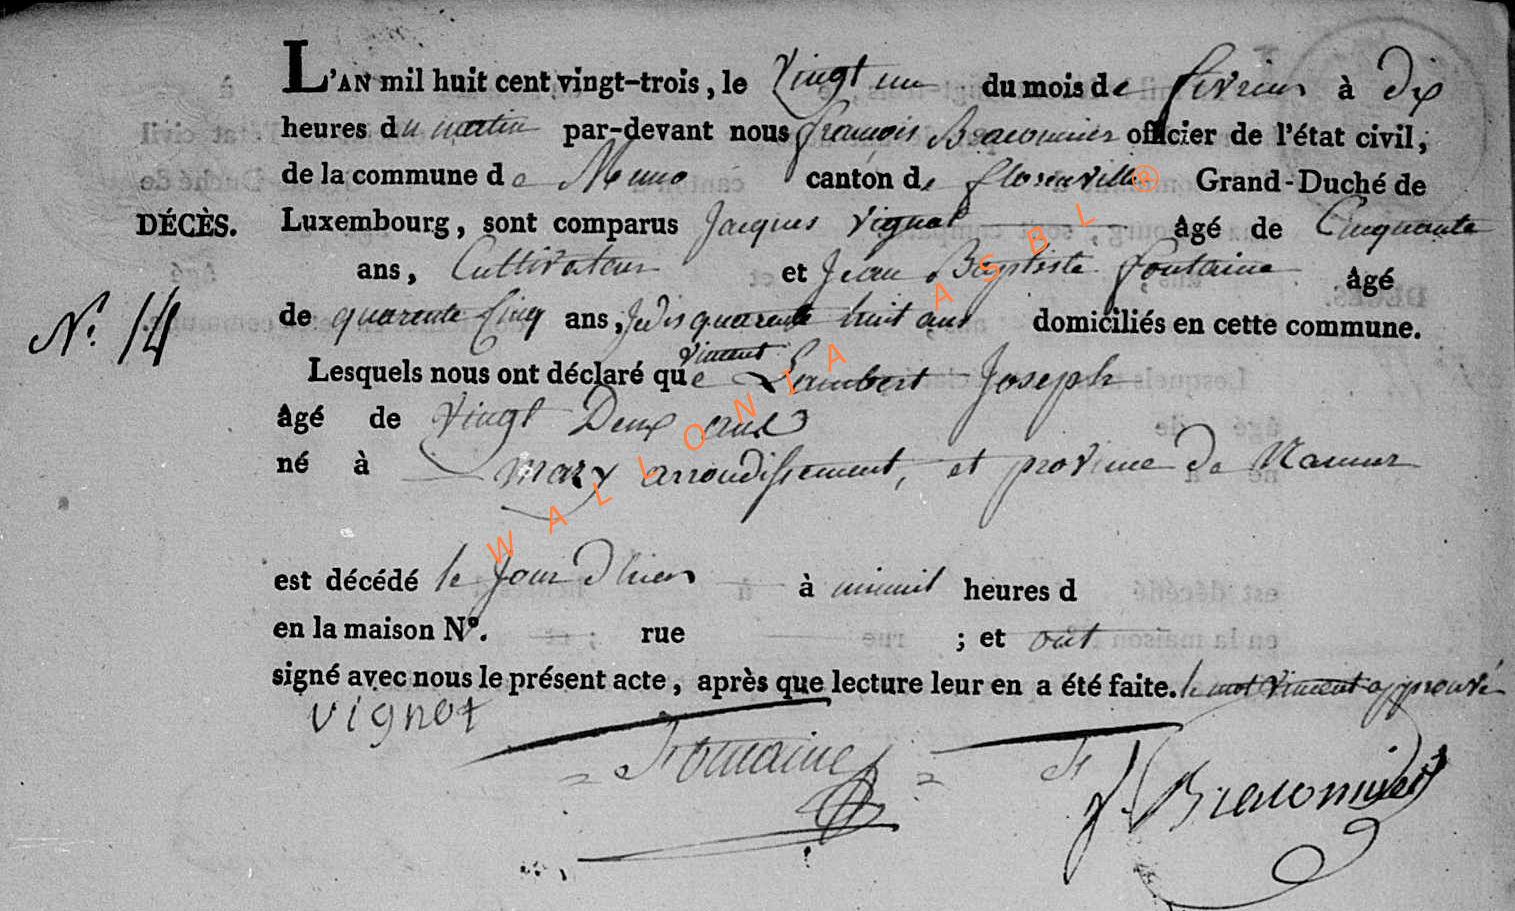 L'AN mil huit cent vingt-trois, le Vingt un du mois de fevrier à dix
heures du matin par-devant nous françois Braconnier officier de l'état civil,
de la commune de Muno canton de florenville Grand-Duché de
DÉCÈS. Luxembourg, sont comparus Jacques Vignot âgé de Cinquante
ans, Cultivateur et Jean Baptiste fontaine âgé
de quarente Cinq ans, Je dis quarente huit ans domiciliés en cette commune.
N.° 14
vincent
Lesquels nous ont déclaré que Lambert Joseph
âgé de Vingt Deux ans
né à arrondissement, et province de Namur
est décédé le Jour d'hier à minuit heures d
en la maison N°. rue ; et ont
signé avec nous le présent acte, après que lecture leur en a été faite. le mot vincent approuvé
vignot
Fontaine
f. Braconnier
WALLONIA ASBL ®